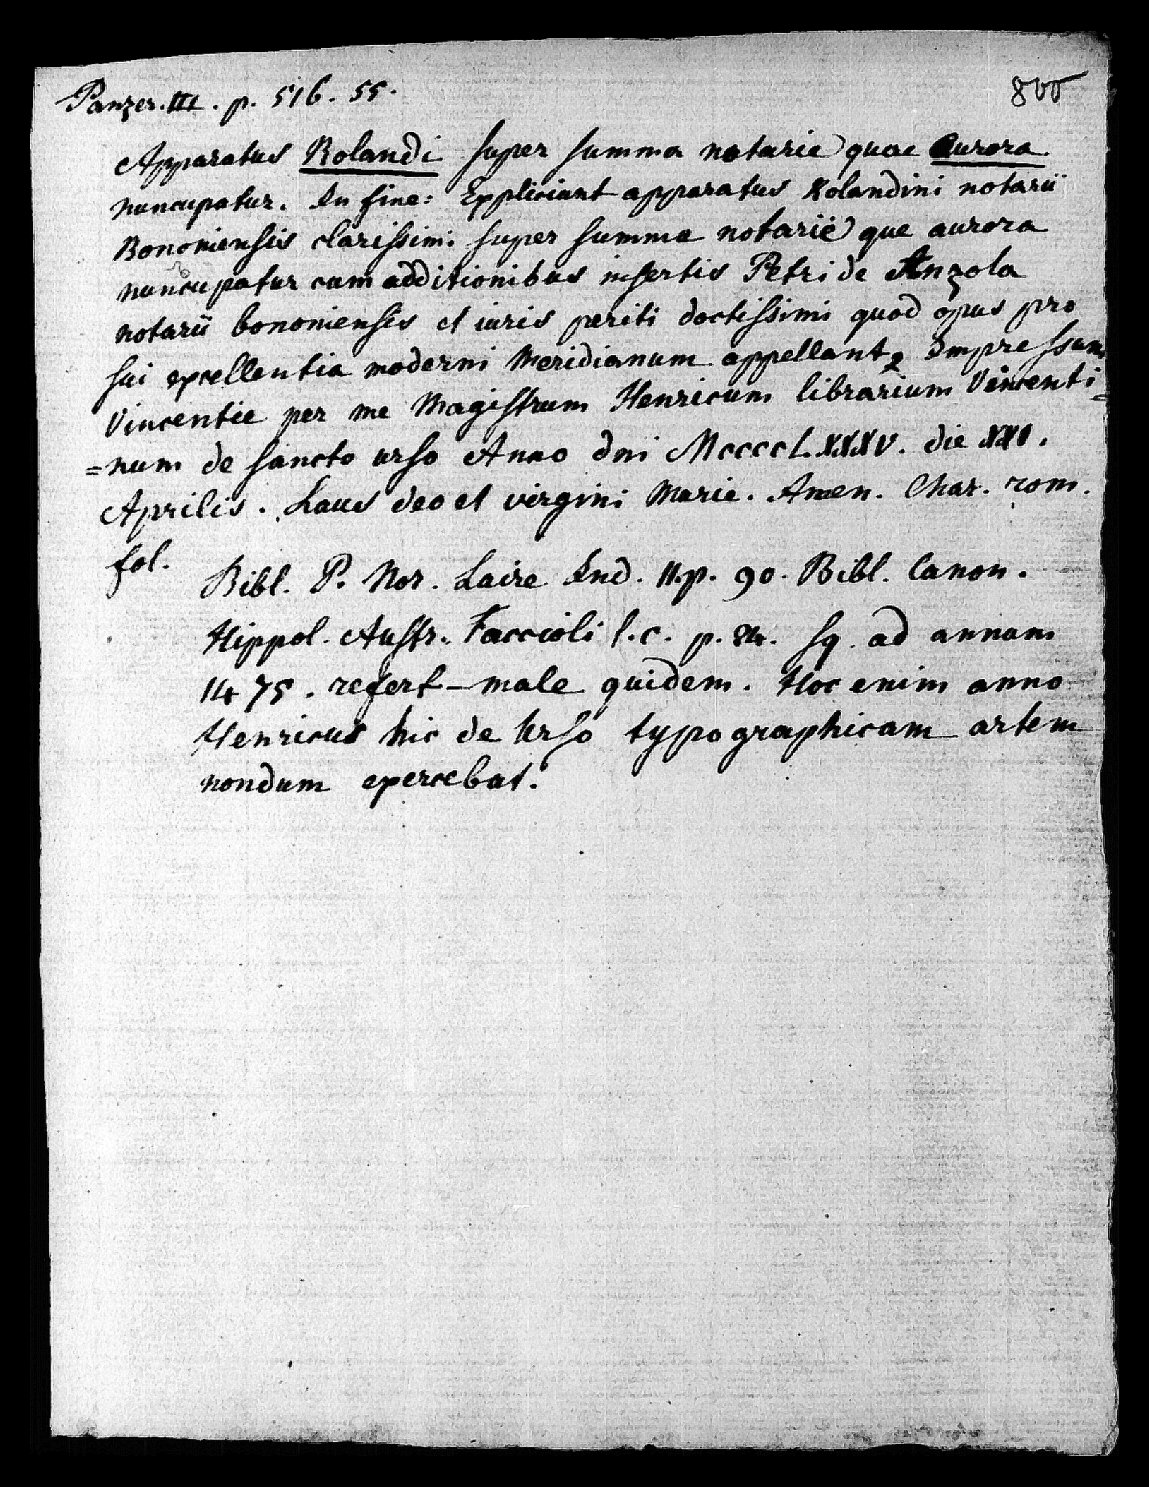 Panzer. III. p. 516. 55.
800
Apparatus Rolandi super summa notarie quae aurora
nuncupatur. In fine: Expliciunt apparatus Rolandini notarii
Bononiensis clarissimi super summa notarie que aurora
nuncupatur cum additionibus insertis Petri de Anzola
notarii bononiensis et iuris periti doctissimi quod opus pro
sui excellentia moderni Meridianum appellant, Impressum
Vincentie per me Magistrum Henricum librarium Vincenti=
=num de sancto urso Anno dni MccccLXXXV. die XXI.
Aprilis. Laus deo et virgini Marie. Amen. Char. rom.
fol.
Bibl. P. Nor. Laire Ind. II. p. 90. Bibl. Canon.
Hippol. Austr. Faccioli l. c. p. 84. sq. ad annum
1475. refert – male quidem. Hoc enim anno
Henricus hic de Urso typographicam artem
nondum exercebat.